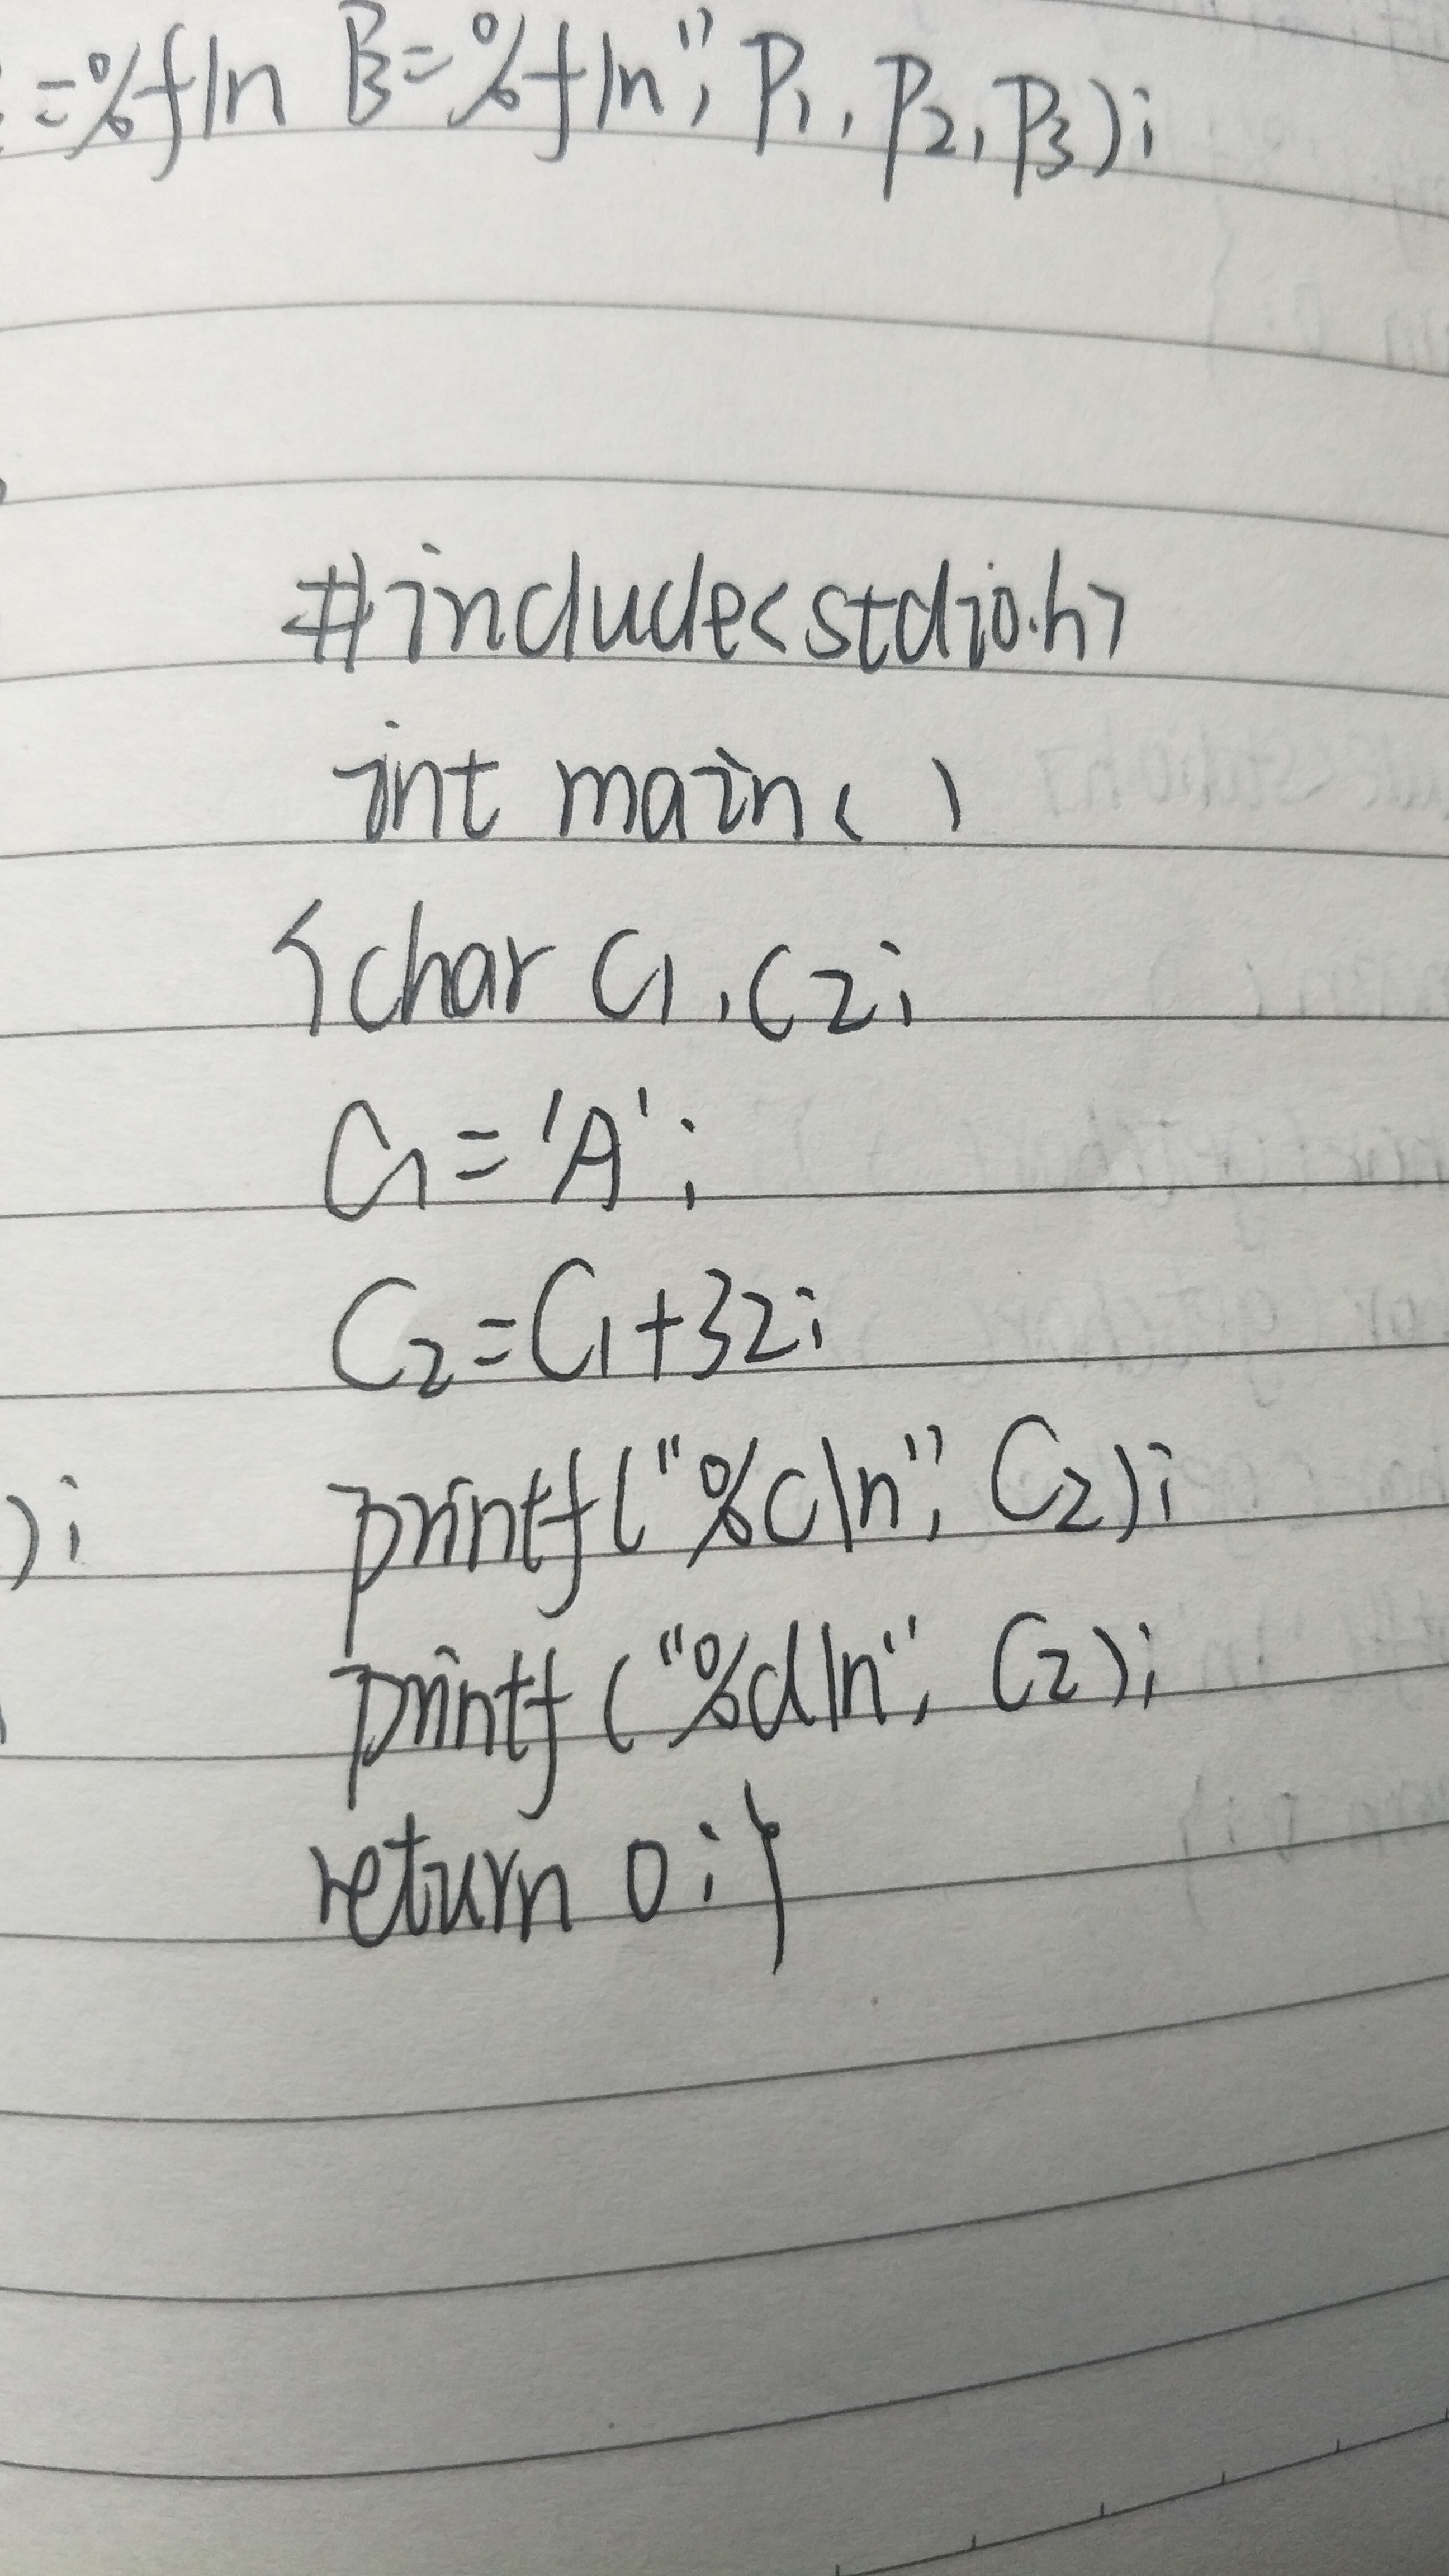 =%f\n B=%f\n", P1, P2, P3);
#include<stdio.h>
int main( )
{char C1,C2;
C1='A';
C2=C1+32;
); printf("%c\n", C2);
printf("%d\n", C2);
return 0;}